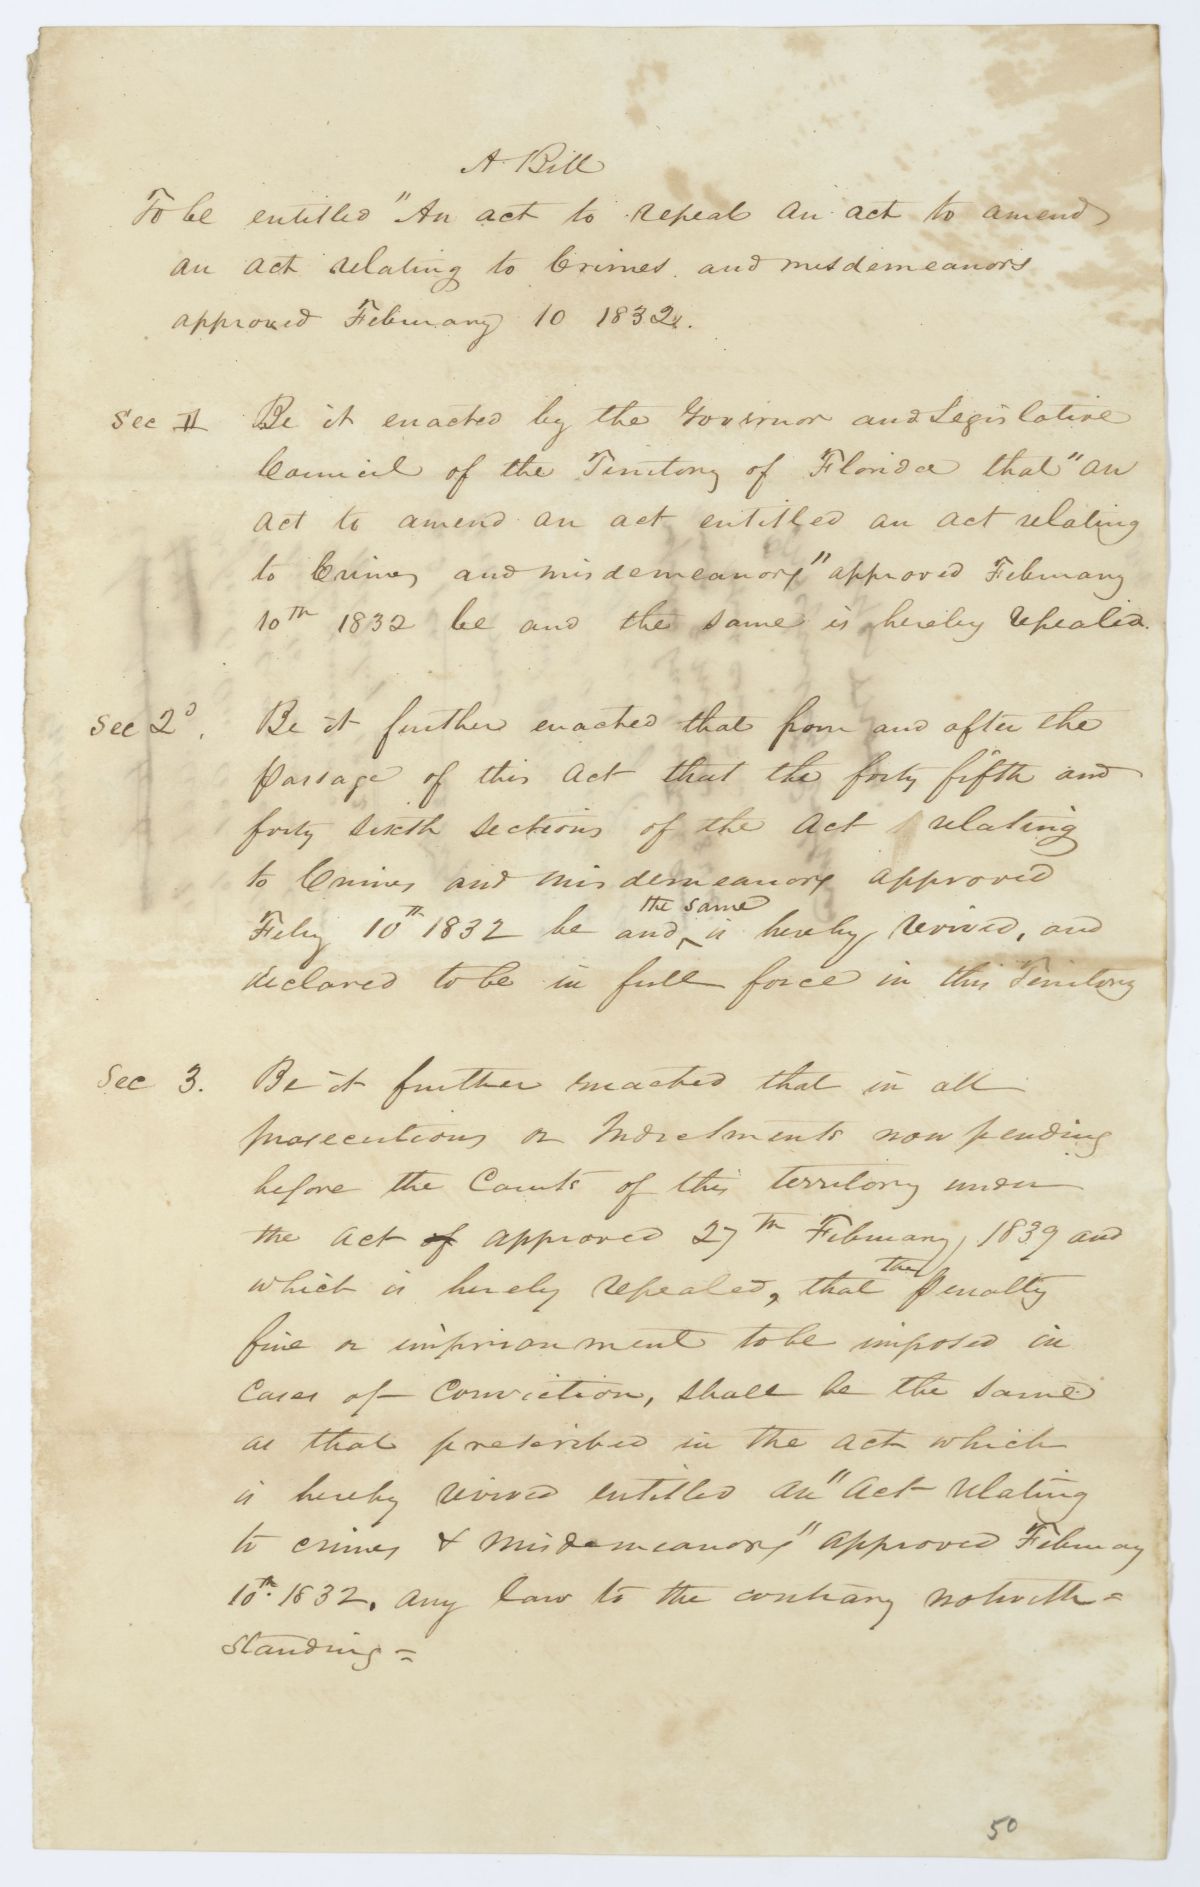 A Bill
To be entitled "An act to repeal an act to amend
an act relating to Crimes and misdemeanors
approved February 10 1832".
Sec 1 Be it enacted by the Governor and Legislative
Council of the Territory of Florida that "an
act to amend an act entitled an act relating
to Crimes and misdemeanors" approved February
10th 1832 be and the same is hereby repealed.
Sec 2d. Be it further enacted that from and after the
passage of this act that the forty fifth and
forty sixth sections of the act relating
to Crimes and misdemeanors approved
Feby 10th 1832 be and the same is hereby revived, and
declared to be in full force in this Territory
Sec 3. Be it further enacted that in all
prosecutions or Indictments now pending
before the Courts of this territory under
the act of approved 27th February 1839 and
which is hereby repealed, that the penalty
fine or imprisonment to be imposed in
Cases of Conviction, shall be the same
as that prescribed in the act which
is hereby revived entitled an "act relating
to crimes & misdemeanors" approved February
10th 1832. any law to the contrary notwith=
standing=
50